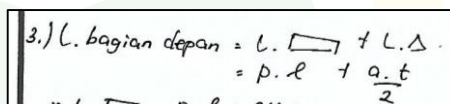 3.) L. bagian depan = L. ▭ + L. Δ
= p. l + a.t/2